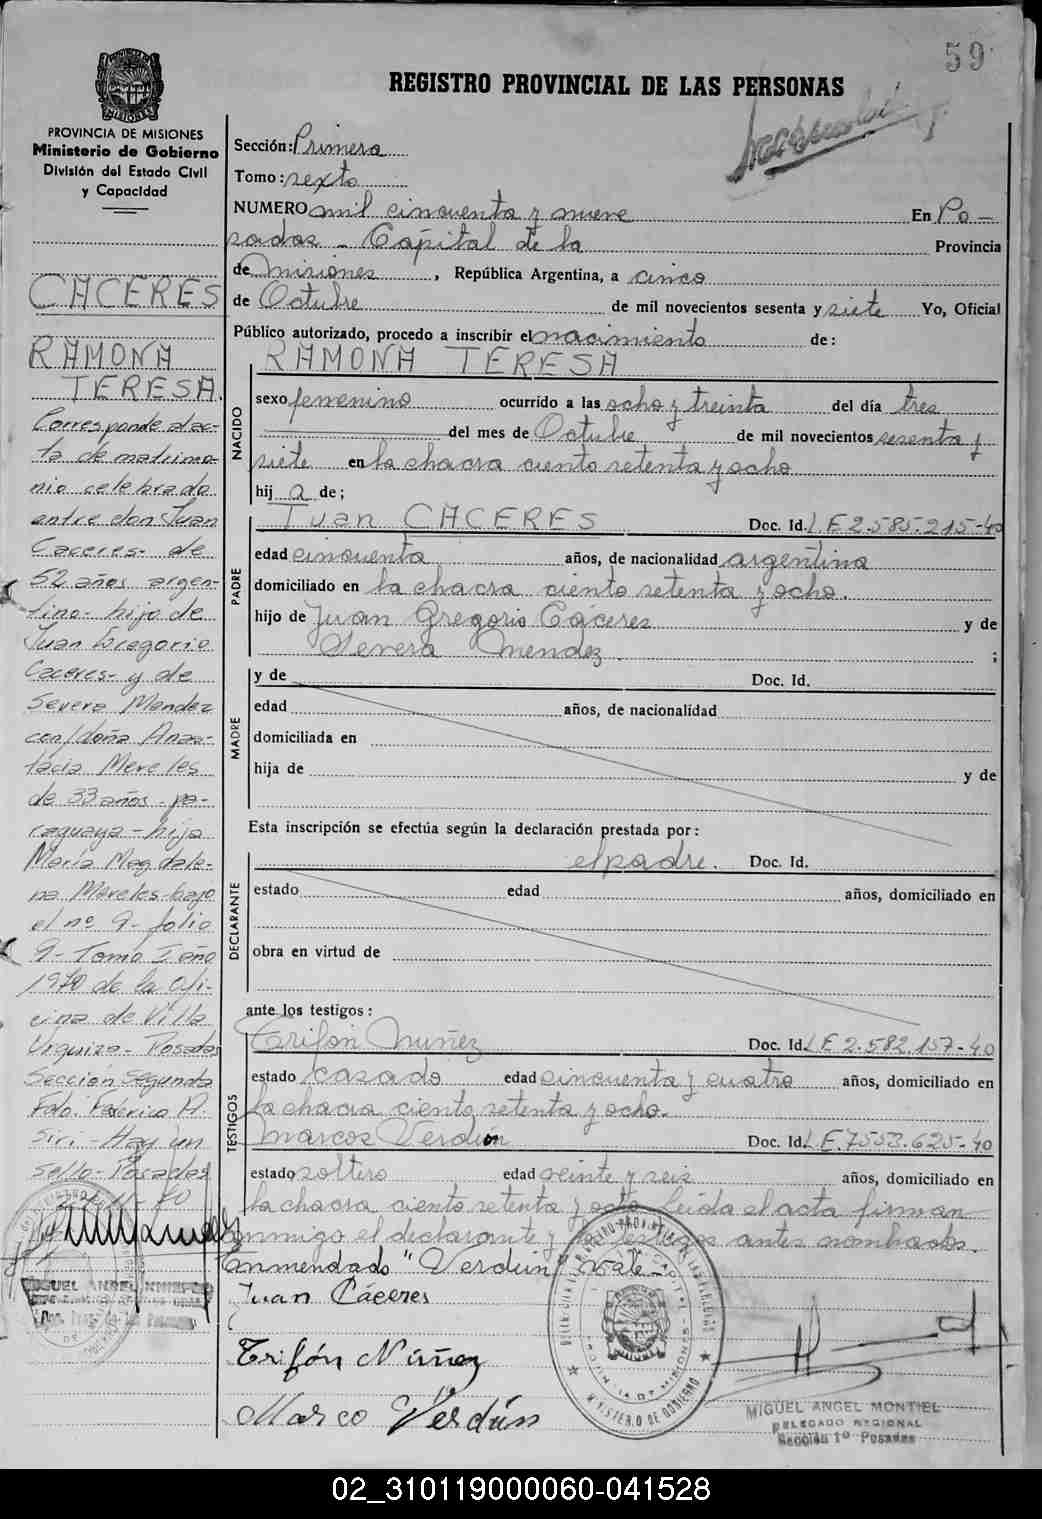 59
REGISTRO PROVINCIAL DE LAS PERSONAS
PROVINCIA DE MISIONES
Ministerio de Gobierno
División del Estado Civil
y Capacidad
CACERES
RAMONA
TERESA.
Corresponde al ac-
ta de matrimo-
nio celebrado
entre don Juan
Caceres- de
52 años argen-
tino- hijo de
Juan Gregorio
Caceres- y de
Severa Mendez
con/doña Anas-
tacia Mereles
de 33 años- pa-
raguaya- hija
María Magdale-
na Mereles- bajo
el nº 9- folio
9- Tomo I año
1970 de la ofi-
cina de Villa
Urquiza- Posadas
Sección Segunda
Fdo. Federico A.
Siri.- Hay un
Sello- Posadas
Sección: Primera
Tomo: sexto
NUMERO mil cincuenta y nueve En Po-
sadas - Capital de la Provincia
de Misiones, República Argentina, a cinco
de Octubre de mil novecientos sesenta y siete Yo, Oficial
Público autorizado, procedo a inscribir el nacimiento de:
NACIDO
RAMONA TERESA
sexo femenino ocurrido a las ocho y treinta del día tres
del mes de Octubre de mil novecientos sesenta y
siete en la chacra ciento setenta y ocho
hij a de;
PADRE
Juan CACERES Doc. Id. L E 2.585.215-40
edad cincuenta años, de nacionalidad argentina
domiciliado en la chacra ciento setenta y ocho.
hijo de Juan Gregorio Cáceres y de
Severa Mendez ;
MADRE
y de Doc. Id.
edad años, de nacionalidad
domiciliada en
hija de y de
Esta inscripción se efectúa según la declaración prestada por:
DECLARANTE
el padre. Doc. Id.
estado edad años, domiciliado en
obra en virtud de
ante los testigos:
TESTIGOS
Trifón Nuñez Doc. Id. L E 2.582.157-40
estado casado edad cincuenta y cuatro años, domiciliado en
la chacra ciento setenta y ocho.
Marcos Verdún Doc. Id. L.E. 7553.625-40
estado soltero edad veinte y seis años, domiciliado en
la chacra ciento setenta y ocho Leída el acta firman
conmigo el declarante y los testigos antes nombrados.
Enmendado "Verdún" vale-
Juan Cáceres
Trifón Núñez
Marco Verdún
MINISTERIO DE GOBIERNO
MIGUEL ANGEL MONTIEL
DELEGADO REGIONAL
Sección 1º Posadas
02_310119000060-041528